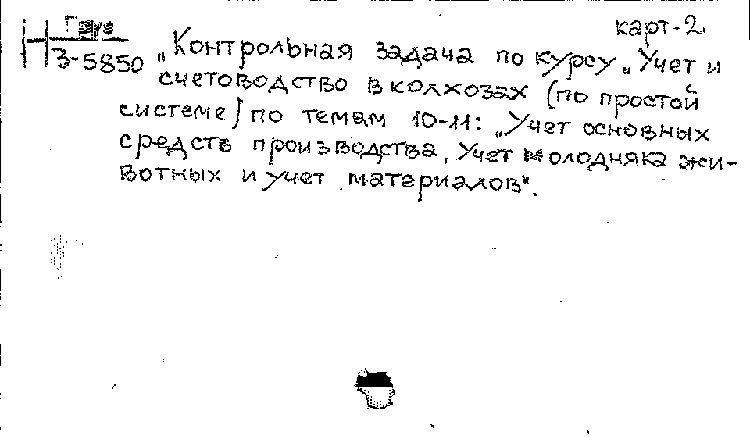 карт-2
З-5850 „Контрольная задача по курсу „Учет и
счетоводство в колхозах (по простой
системе) по темам 10-11: „Учет основных
средств производства, Учет молодняка жи-
вотных и учет материалов".